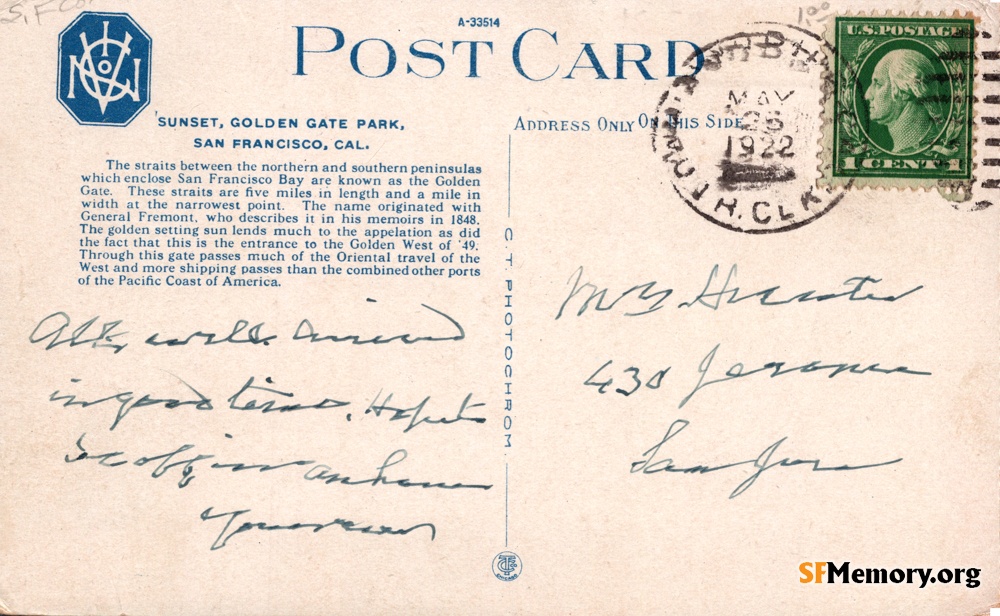 S.F. Co.
A-33514
POST CARD
U.S. POSTAGE
1 CENT 1
MAY
26
1922
R. CLK.
ADDRESS ONLY ON THIS SIDE
SUNSET, GOLDEN GATE PARK,
SAN FRANCISCO, CAL.
The straits between the northern and southern peninsulas
which enclose San Francisco Bay are known as the Golden
Gate. These straits are five miles in length and a mile in
width at the narrowest point. The name originated with
General Fremont, who describes it in his memoirs in 1848.
The golden setting sun lends much to the appelation as did
the fact that this is the entrance to the Golden West of '49.
Through this gate passes much of the Oriental travel of the
West and more shipping passes than the combined other ports
of the Pacific Coast of America.
C. T. PHOTOCHROM.
well. Arrived
in good time. Hope to
be off in an hour
430
San Jose
CHICAGO
SFMemory.org